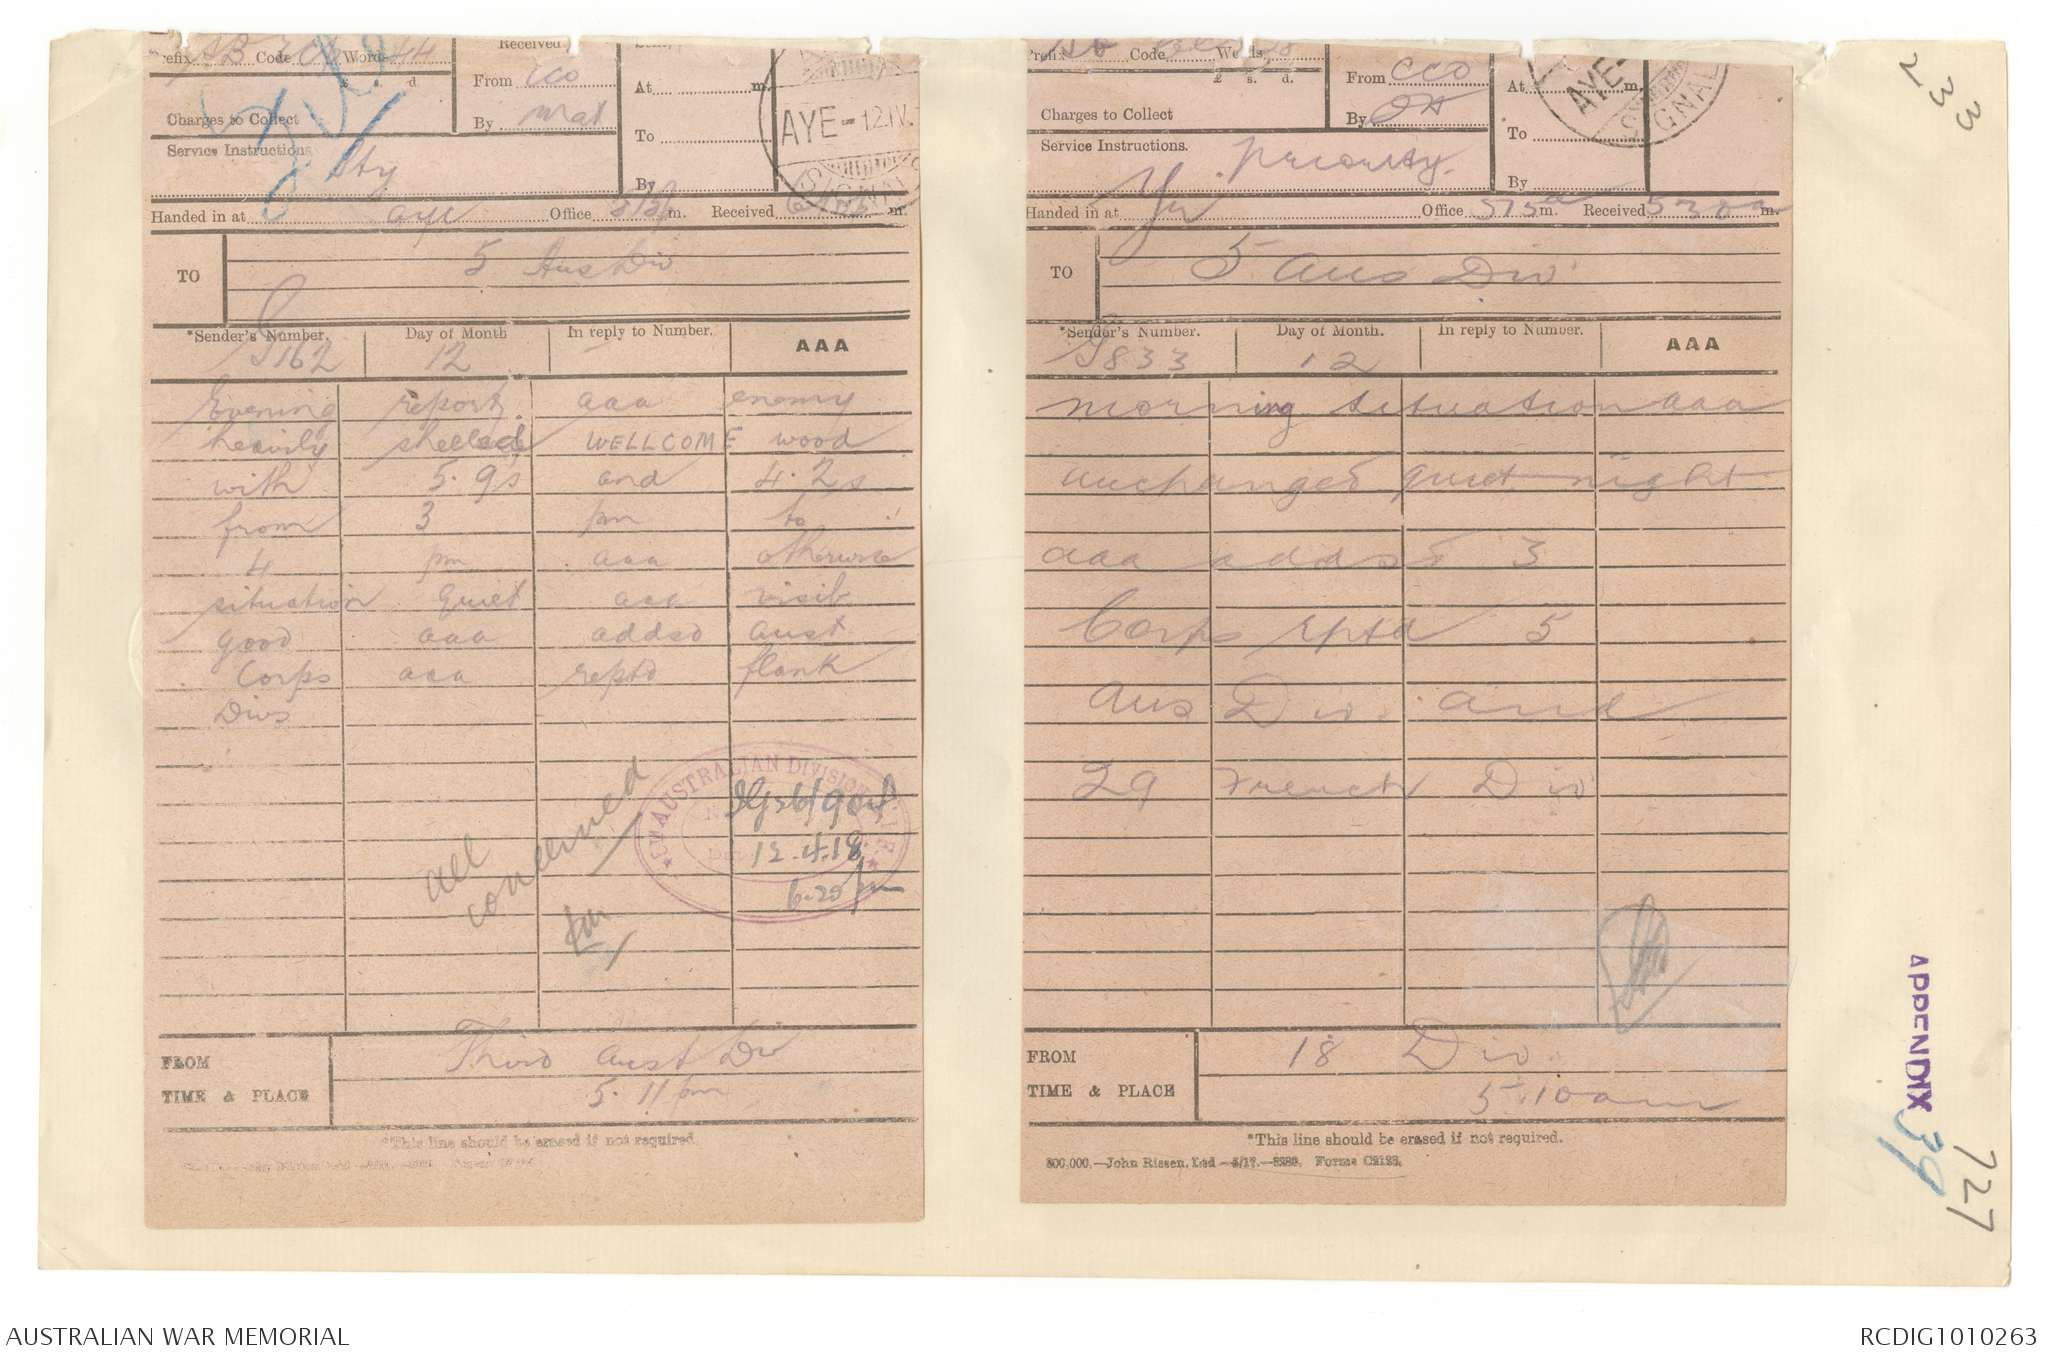 Prefix SB Code Words 44
£ s. d.
Charges to Collect
Service Instructions
Pty
Received.
From CCO
By
At m.
To
By
AYE - 12.IV.
SIGNALS
Handed in at aye Office m. Received m.
TO 5 Aus Div
*Sender's Number. Day of Month In reply to Number. AAA
G162 12 -
Evening report aaa enemy
heavily shelled WELLCOME wood
with 5.9's and 4.2s
from 3 pm to
4 pm aaa otherwise
situation quiet aaa visib
good aaa addsd aust
Corps aaa reptd flank
Divs
AUSTRALIAN DIVISION
12.4.18
6.20 pm
all
concerned
FROM Third Aust Div
TIME & PLACE 5.11 pm
*This line should be erased if not required.
Prefix Code Words
£ s. d.
Charges to Collect
Service Instructions.
Priority.
From CCO
By
At m.
To
By
AYE-
SIGNALS
Handed in at Office 515a m. Received m.
TO 5 Aus Div
*Sender's Number. Day of Month. In reply to Number. AAA
G833 12
morning situation aaa
unchanged quiet night
aaa addsd 3
Corps rptd 5
Aus Div and
29 French Div
FROM 18 Div
TIME & PLACE 5.10 am
*This line should be erased if not required.
233
APPENDIX 39
727
AUSTRALIAN WAR MEMORIAL
RCDIG1010263